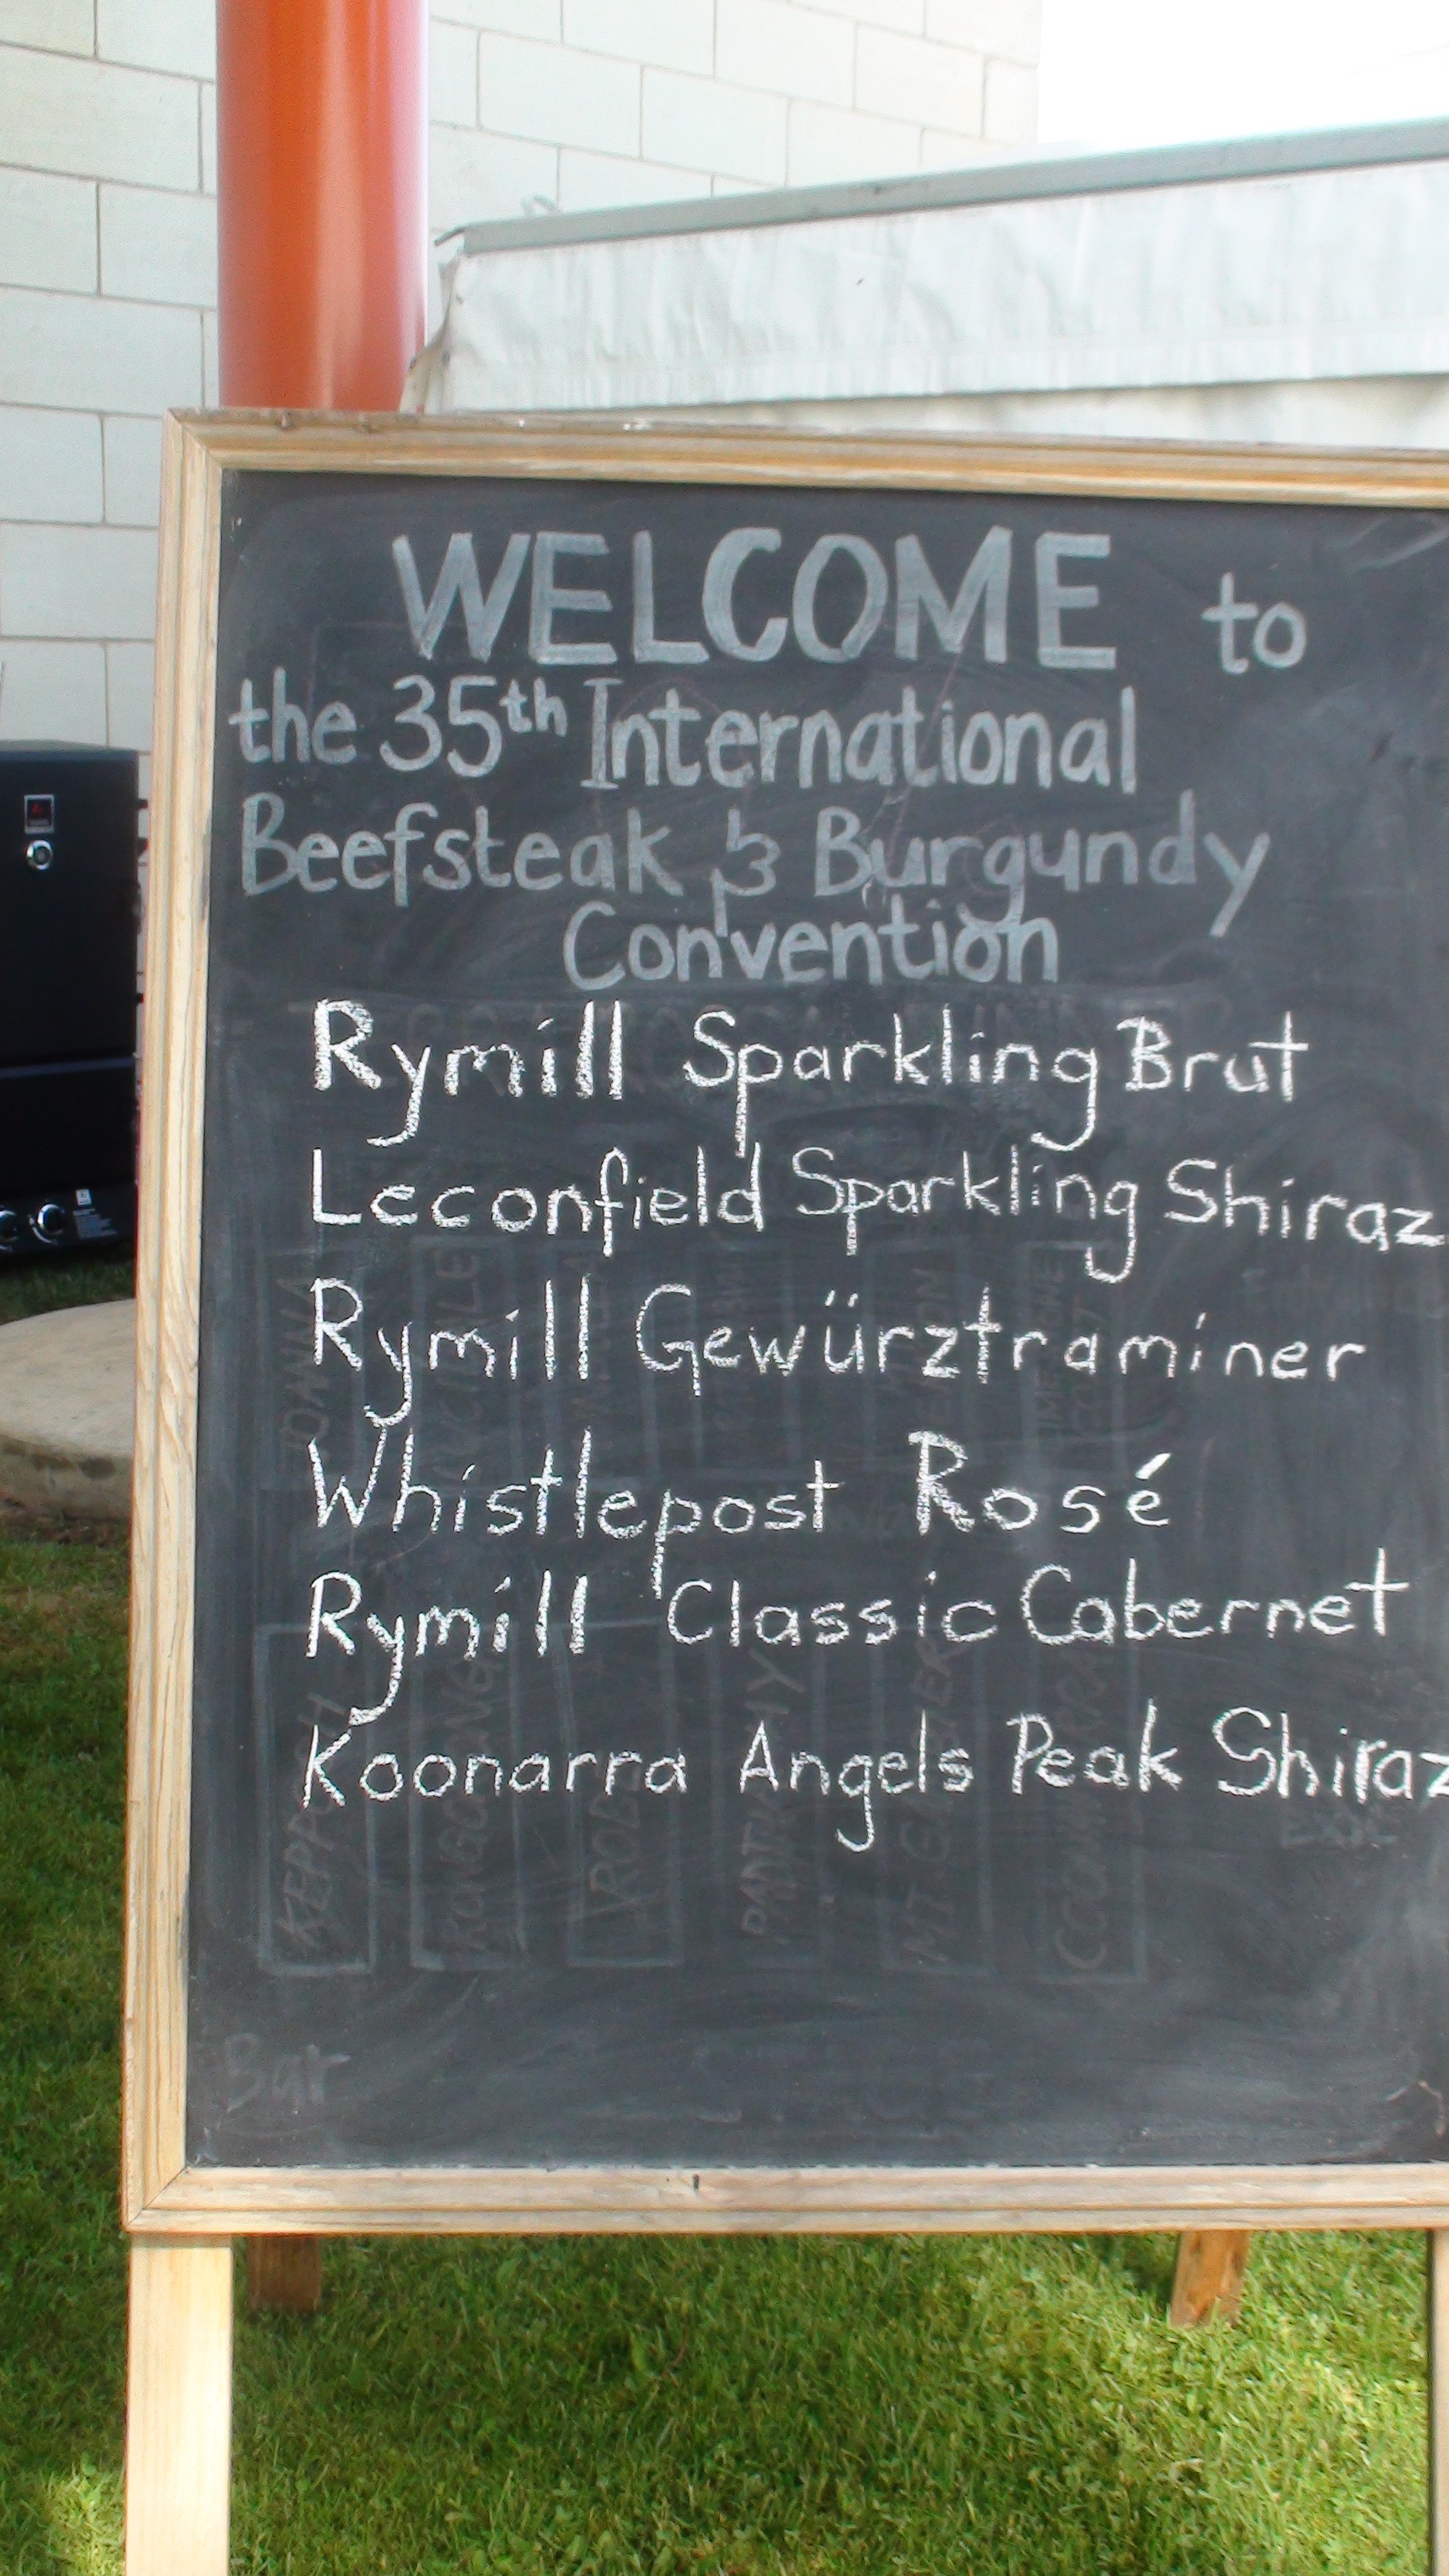 WELCOME to
the 35th International
Beefsteak & Burgundy
Convention
Rymill Sparkling Brut
Leconfield Sparkling Shiraz
Rymill Gewürztraminer
Whistlepost Rosé
Rymill Classic Cabernet
Koonarra Angels Peak Shiraz
Bar